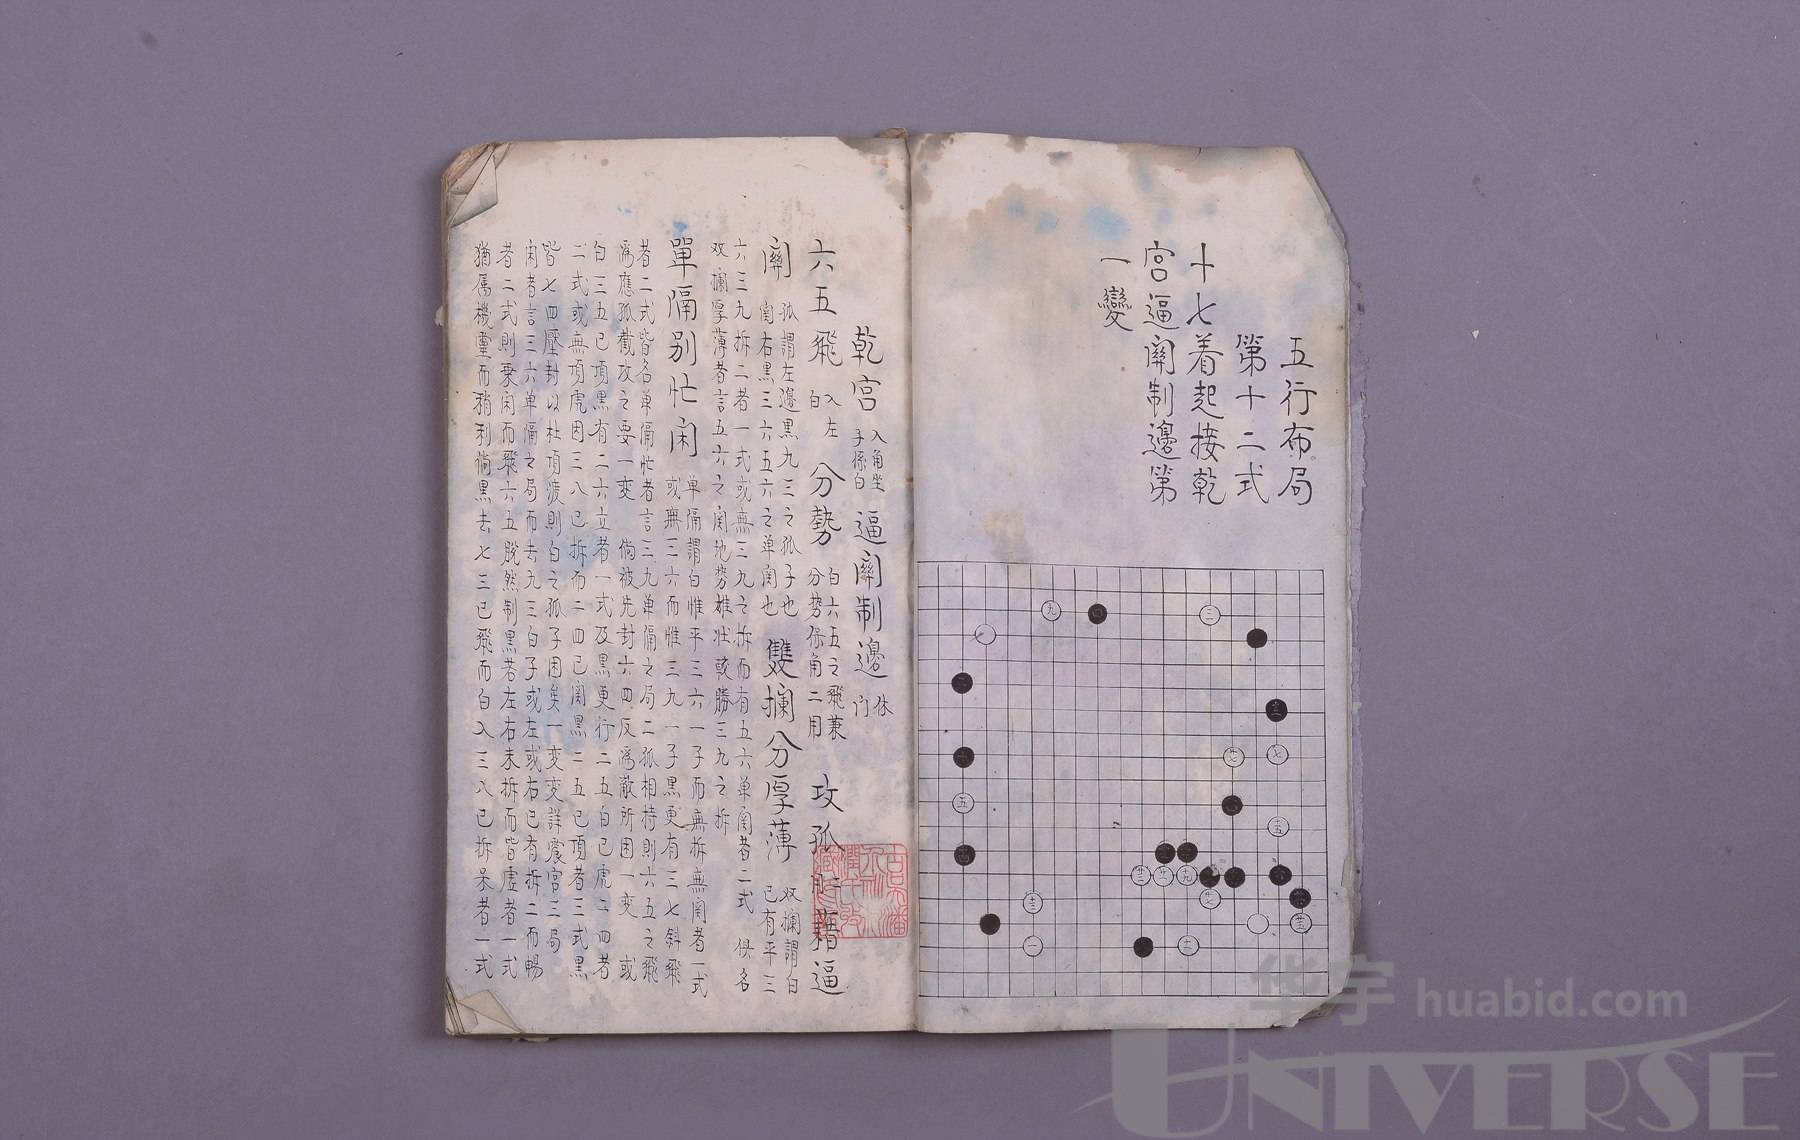 五行布局
第十二式
十七着起接乾
宮逼關制邊第
一變
九
四
三
七
五
九
一
乾宮 入角坐子孫白 逼關制邊 休門
六五飛 入左白 分勢 白六五之飛兼分勢係角二用 攻孤 二用 藉逼
關 孤謂左邊黑九三之孤子也 関右黑三六五六之单関也 雙攔分厚薄 双攔謂白已有平三
六三九拆二者一式或無三九之拆而有五六单関者二式 俱名
双攔厚薄者言五六之関地势雄壯或勝三九之拆
單隔別忙闲 单隔謂白惟平三六一子而無拆無関者一式 或無三六而惟三九一子黑更有三七斜飛
者二式皆名单隔忙者言三九单隔之局二孤相持則六五之飛
爲應孤截攻之要一变 倘被先封六四反爲敵所困一变 或
白三五已頂黑有二六立者一式及黑更行二五白已虎二四者
二式或無頂虎因三八已拆而二四已関黑二五已頂者三式黑
皆七四壓封以杜頂渡則白之孤子困矣一变变詳震宮三局
闲者言三六单隔之局而去九三白子或左或右已有拆二而暢
者二式則乗闲而飛六五脱然制黑若左右未拆而皆虛者一式
猶属機靈而稍利倘黑去七三已飛而白入三八已拆呆者一式
华宇 huabid.com
UNIVERSE